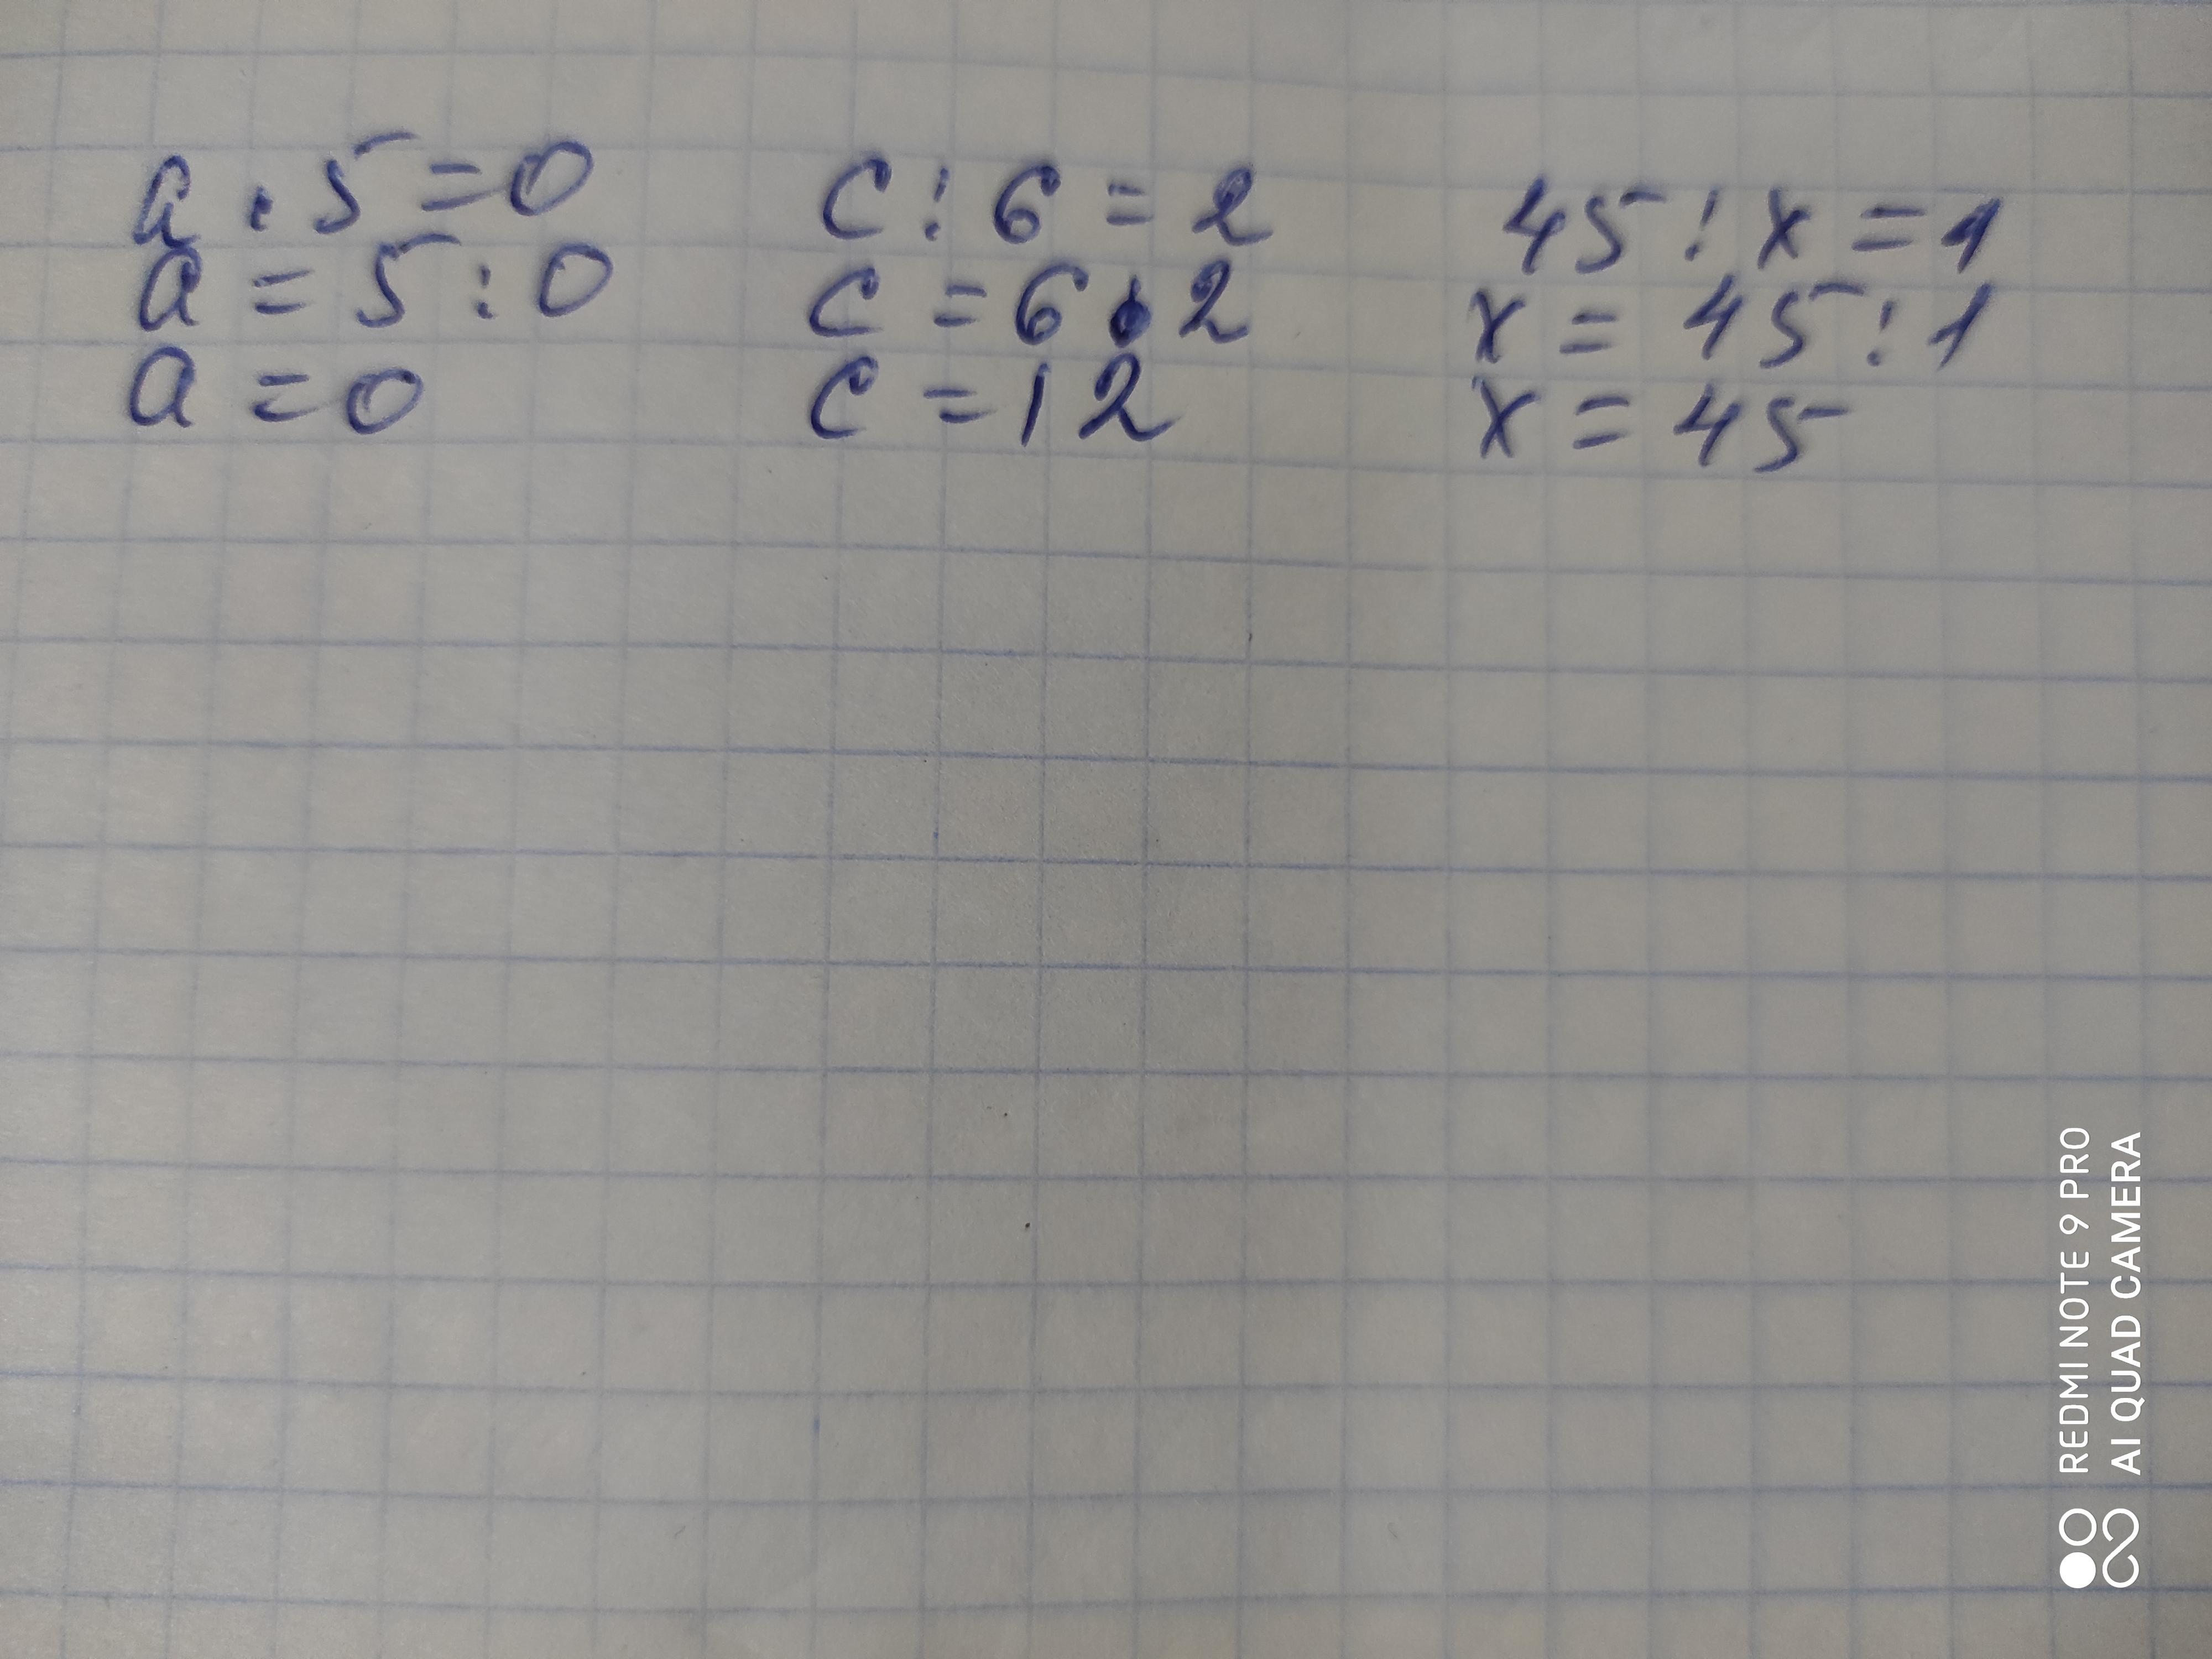 a · 5 = 0
a = 5 : 0
a = 0
c : 6 = 2
c = 6 · 2
c = 12
45 : x = 1
x = 45 : 1
x = 45
REDMI NOTE 9 PRO
AI QUAD CAMERA